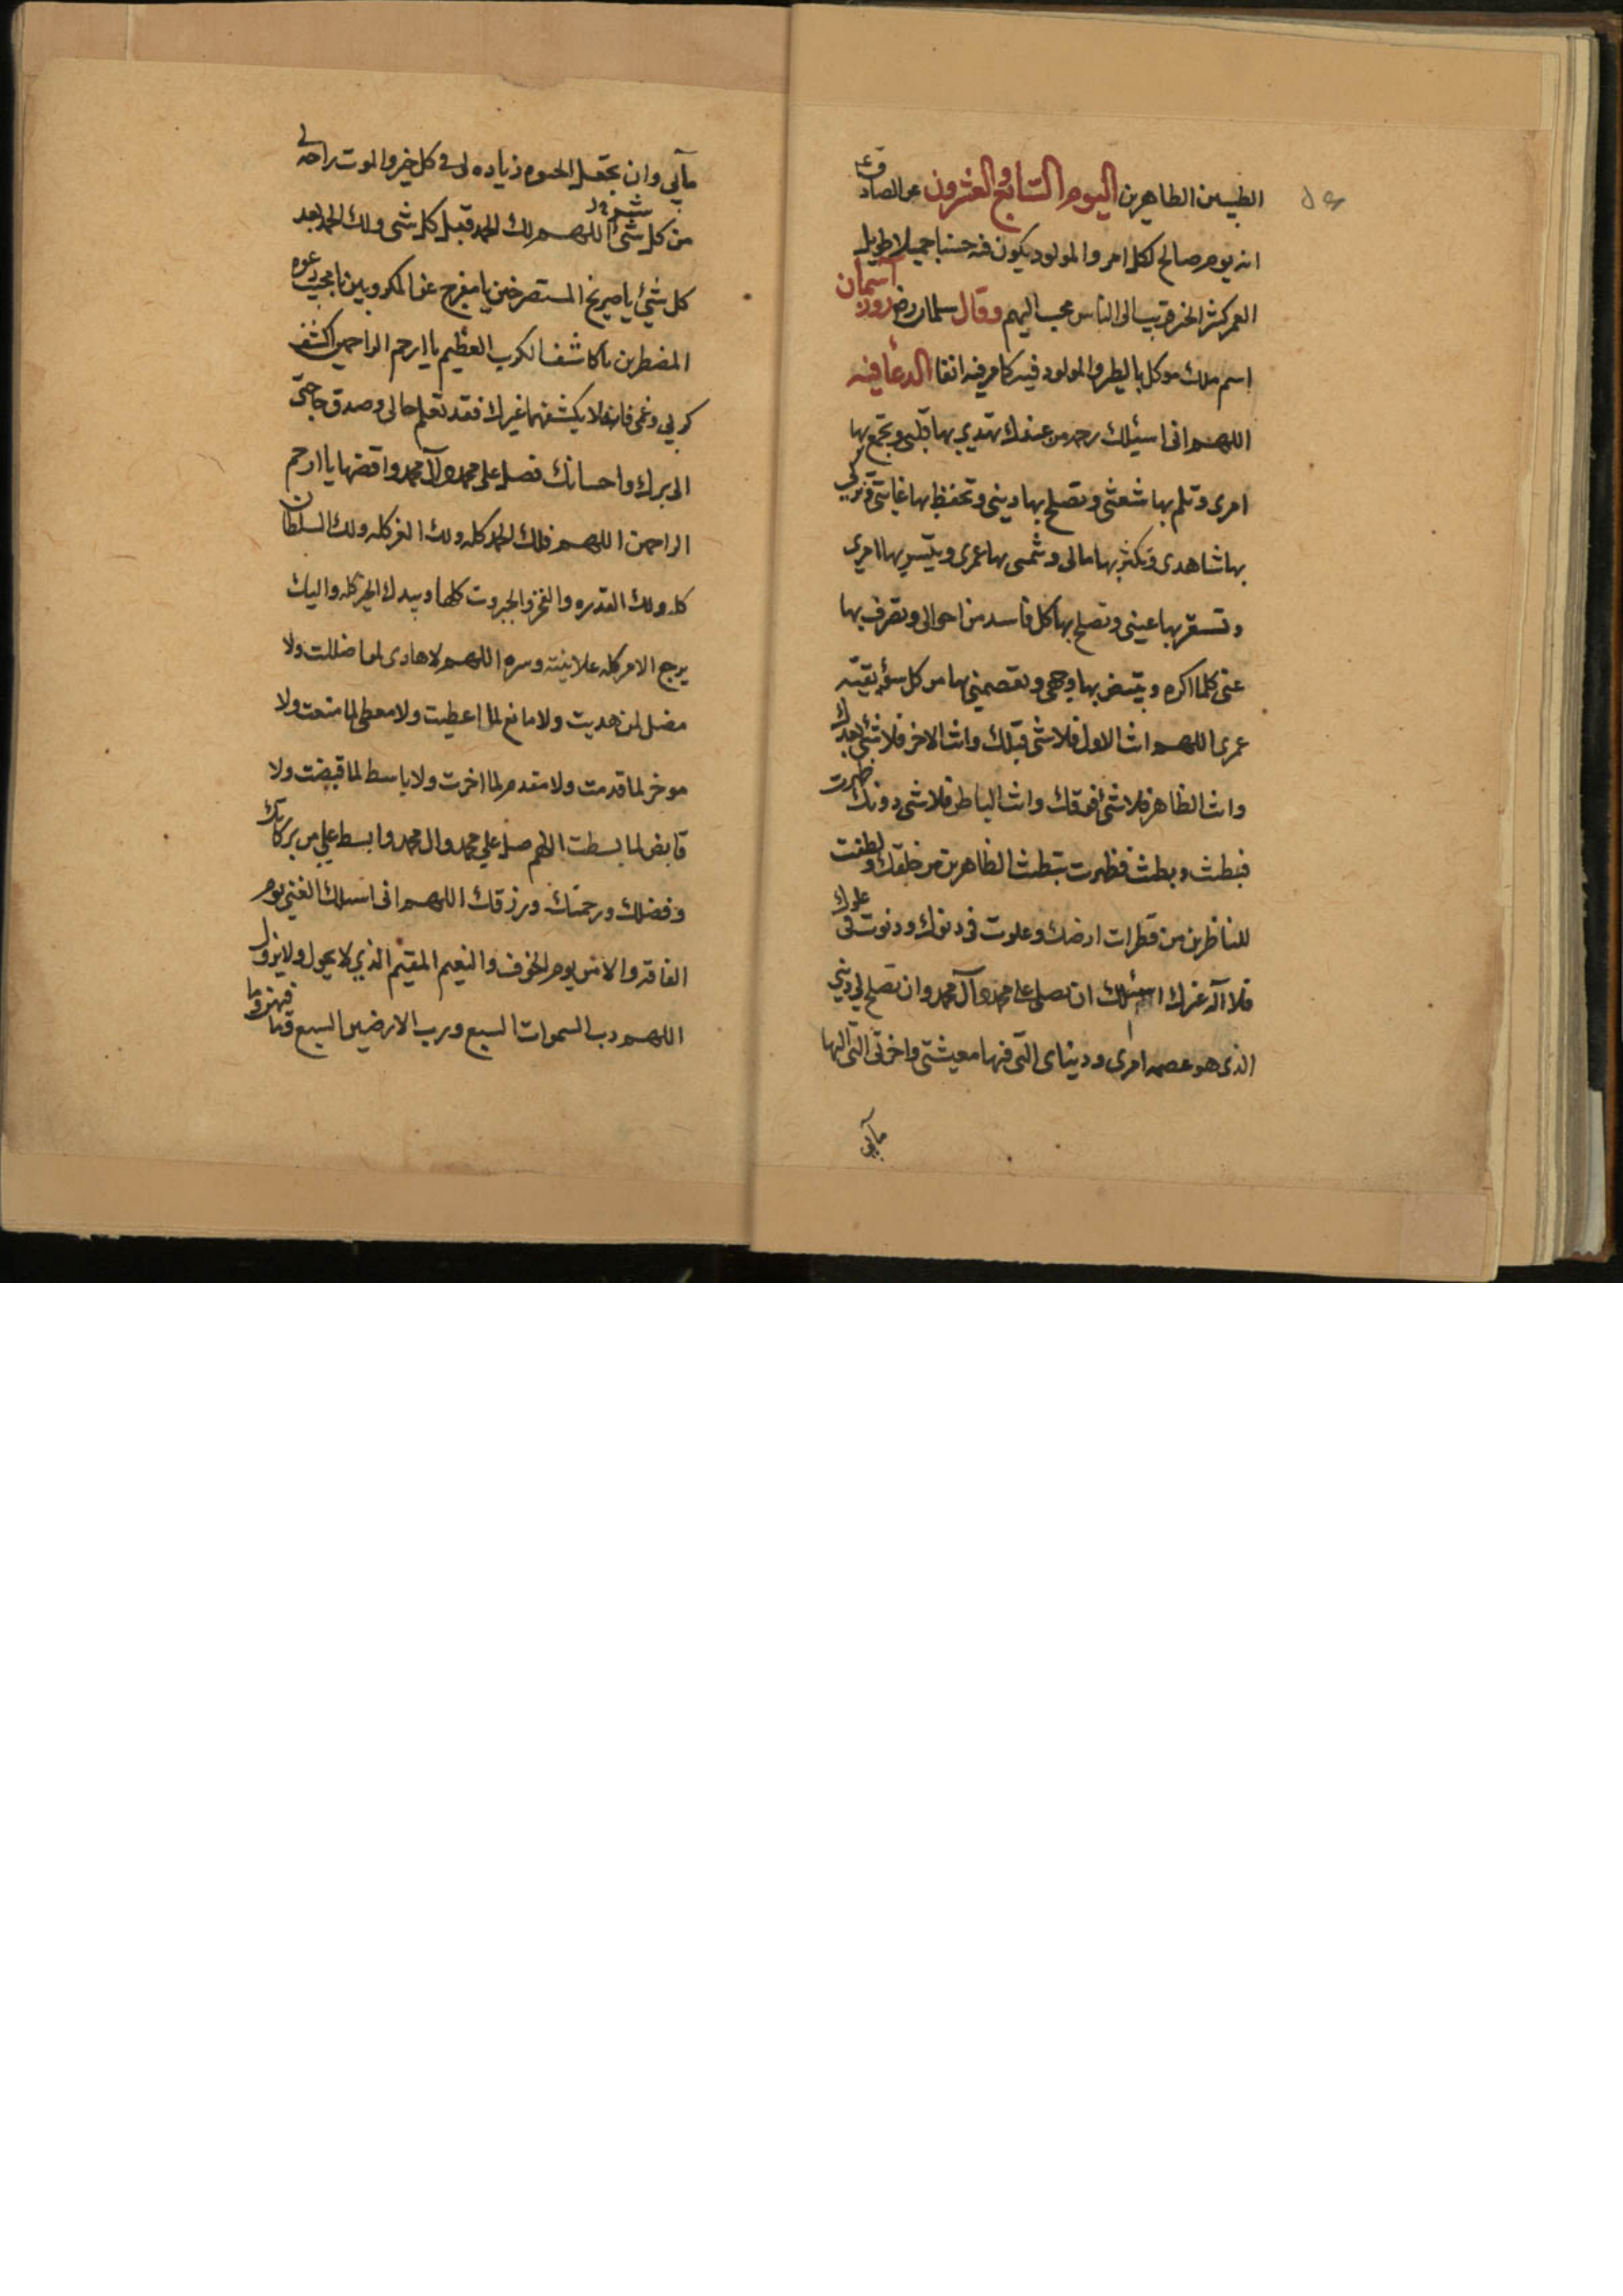 الطيبين الطاهرين اليوم السابع والعشرون عن الصادق ع
انه يوم صالح لكل امر والمولود يكون فيه حسنا جميلا طويل
العمر كثير الخير قريب الى الناس محبب اليهم وقال سلمان رض روز آسمان
اسم ملك موكل بالطير والمولود فيه كامر فيه انفا الدعا فيه
اللهم انى اسئلك رحمه من عندك تهدي بها قلبى وتجمع بها
امرى وتلم بها شعثى وتصلح بها دينى وتحفظ بها غايبتى وتزكي
بها شاهدى وتكثر بها مالى وتنمى بها عمرى وتيسر بها امري
وتستر بها عيبنى وتصلح بها كل فاسد من احوالى وتصرف بها
عنى كلما اكره وتبيض بها وجهى وتعصمنى بها من كل سؤ بقيته
عمرى اللهم انت الاول فلا شى قبلك وانت الاخر فلا شئ بعدك
وانت الظاهر فلا شئ فوقك وانت الباطن فلا شى دونك ظهرت
فبطنت وبطنت فظهرت بتطنت للظاهرين من خلقك ولطفت
للناظرين من قطرات ارضك وعلوت فى دنوك ودنوت فى علوك
فلا اله غيرك اسئلك ان تصلى على محمد وآل محمد وان تصلح لي ديني
الذى هو عصمه امرى ودنياى التى فيها معيشتى واخرتى التى اليها
مآبي
مآبي وان تجعل الحيوه زياده لى فى كل خير والموت راحه لى
من كل شى اللهم لك الحمد قبل كل شى ولك الحمد بعد
كل شئ يا صريخ المستصرخين يا مفرج عن المكروبين يا مجيب دعوه
المضطرين يا كاشف الكرب العظيم يا ارحم الراحمين اكشف
كربي وغمى فانه لا يكشفهما غيرك فقد تعلم حالى وصدق حاجتى
الى برك واحسانك فصل على محمد وآل محمد واقضها يا ارحم
الراحمين اللهم فلك الحمد كله ولك العز كله ولك السلطان
كله ولك القدره والفخر والجبروت كلها وبيدك الخير كله واليك
يرجع الامر كله علانيته وسره اللهم لا هادى لمن اضللت ولا
مضل لمن هديت ولا مانع لما اعطيت ولا معطى لما منعت ولا
موخر لما قدمت ولا مقدم لما اخرت ولا باسط لما قبضت ولا
قابض لما بسطت اللهم صل علي محمد وال محمد وابسط علي من بركاتك
وفضلك ورحمتك ورزقك اللهم انى اسئلك الغنى يوم
الفاقه والامن يوم الخوف والنعيم المقيم الذي لا يحول ولا يزول
اللهم رب السموات السبع ورب الارضين السبع وما فيهن وما